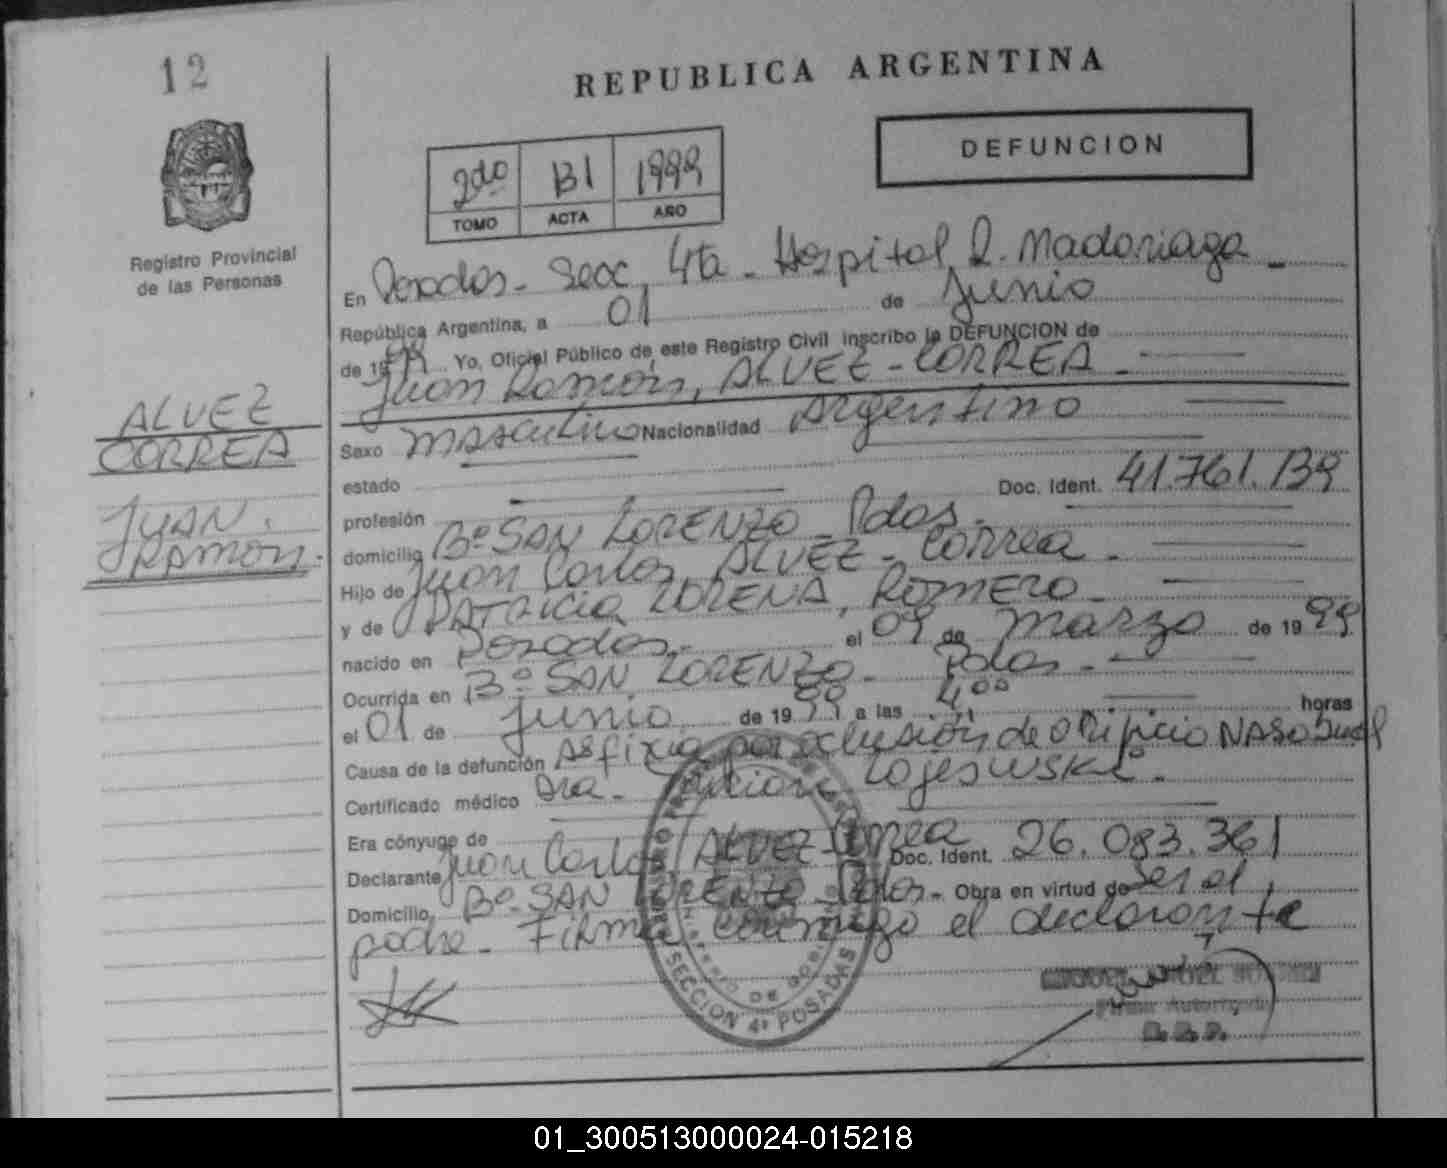 12
REPUBLICA ARGENTINA
DEFUNCION
2do B1 1999
TOMO ACTA AÑO
Registro Provincial
de las Personas
En Posadas - Secc. 4ta - Hospital R. Madariaga -
República Argentina, a 01 de Junio
de 1999 Yo, Oficial Público de este Registro Civil inscribo la DEFUNCION de
Juan Ramón, ALVEZ - CORREA -
ALVEZ
CORREA
JUAN
RAMON.
Sexo Masculino Nacionalidad Argentino
estado Doc. Ident. 41.761.139
profesión
domicilio Bº SAN LORENZO - Pdas.
Hijo de Juan Carlos, ALVEZ - Correa -
y de PATRICIA LORENA, ROMERO -
nacido en Posadas. el 09 de Marzo de 1999
Ocurrida en Bº SAN LORENZO - Pdas. -
el 01 de Junio de 1999 a las 4⁰⁰ horas
Causa de la defunción Asfixia por oclusión de orificio NASO
Certificado médico Dra.
Era cónyuge de
Declarante Juan Carlos ALVEZ - Correa Doc. Ident. 26.083.361
Domicilio Bº SAN LORENZO - Pdas - Obra en virtud de ser el
padre - Firma conmigo el declarante
SECCION 4ª POSADAS
Firma Autorizada
01_300513000024-015218